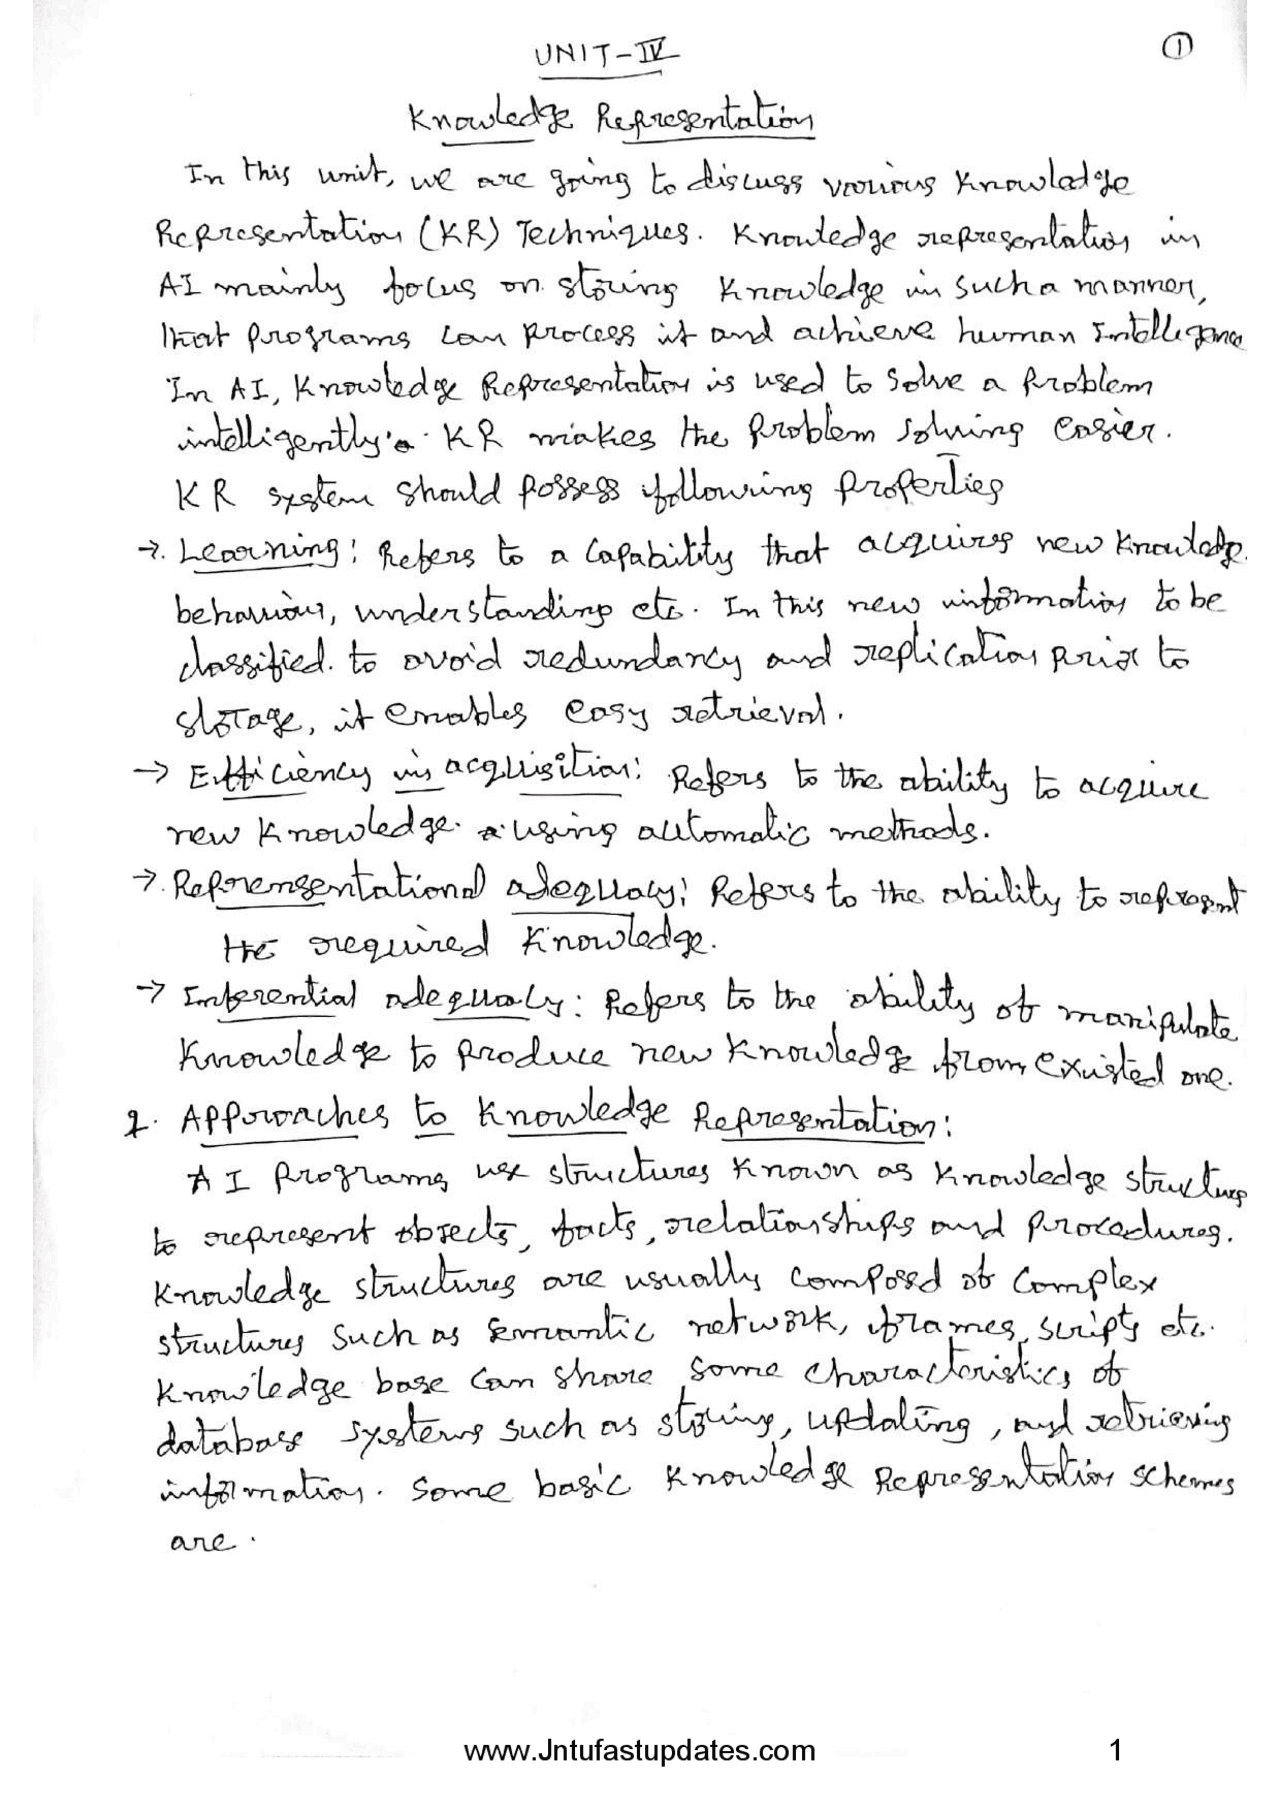 UNIT-IV
1
Knowledge Representation
In this unit, we are going to discuss various Knowledge
Representation (KR) Techniques. Knowledge representation in
AI mainly focus on storing Knowledge in such a manner,
that programs can process it and achieve human Intelligence
In AI, Knowledge Representation is used to solve a Problem
intelligently. KR makes the Problem solving easier.
KR system should possess following properties
→. Learning: Refers to a capability that acquires new knowledge
behaviour, understanding etc. In this new information to be
classified. to avoid redundancy and replication prior to
storage, it enables easy retrieval.
→ Efficiency in acquisition: Refers to the ability to acquire
new knowledge. using automatic methods.
→. Reprensentational adequacy: Refers to the ability to represent
the required Knowledge.
→ Inferential adequacy: Refers to the ability of manipulate
Knowledge to produce new knowledge from existed one.
2. Approaches to Knowledge Representation:
AI programs use structures known as knowledge structures
to represent objects, facts, relationships and procedures.
Knowledge structures are usually composed of complex
structures such as semantic network, frames, scripts etc.
Knowledge base can share some characteristics of
database systems such as storing, updating, and retrieving
information. Some basic Knowledge Representation schemes
are.
www.Jntufastupdates.com
1